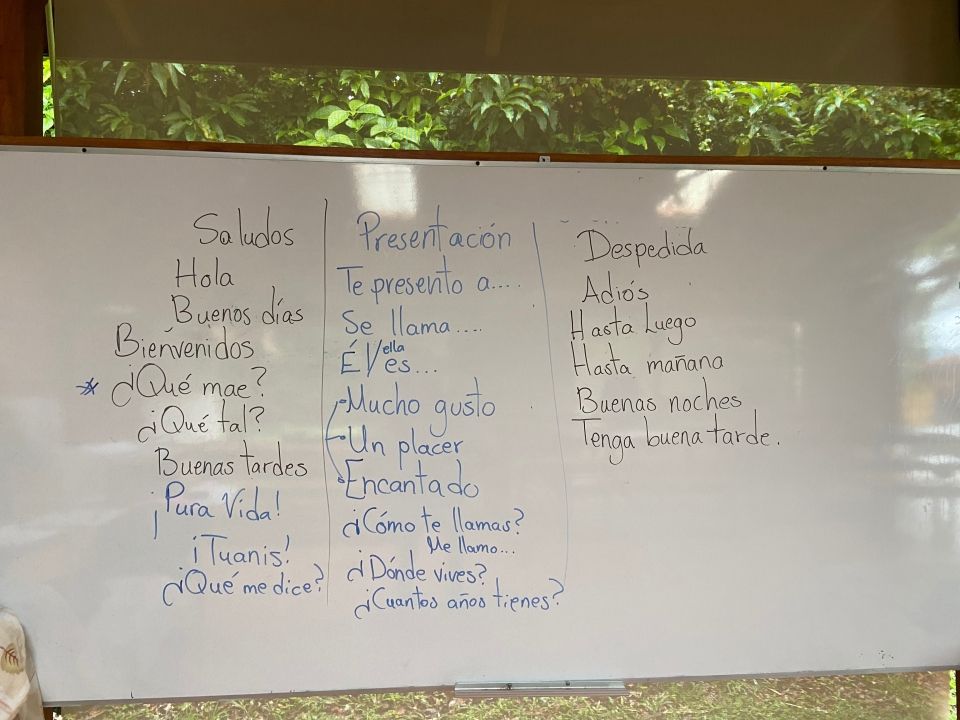 Saludos
Hola
Buenos días
Bienvenidos
* ¿Qué mae?
¿Qué tal?
Buenas tardes
¡Pura Vida!
¡Tuanis!
¿Qué me dice?
Presentación
Te presento a....
Se llama....
Él/ella es...
-Mucho gusto
-Un placer
Encantado
¿Cómo te llamas?
Me llamo...
¿Dónde vives?
¿Cuantos años tienes?
Despedida
Adiós
Hasta Luego
Hasta mañana
Buenas noches
Tenga buena tarde.